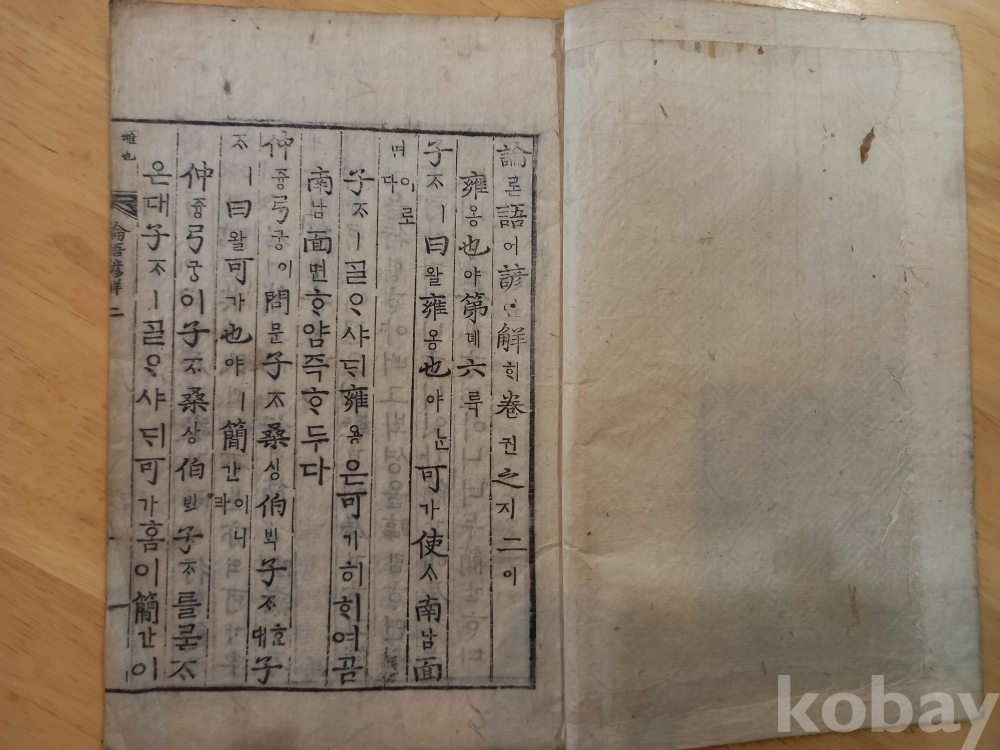 論론語어諺언解ᄒᆡ卷권之지二이
雍옹也야第뎨六륙
子ᄌᆞㅣ曰왈雍옹也야ᄂᆞᆫ可가使ᄉᆞ南남面
면이로다
子ᄌᆞㅣᄀᆞᆯᄋᆞ샤ᄃᆡ雍옹은可가히ᄒᆞ여곰
南남面면ᄒᆞ얌즉ᄒᆞ두다
仲즁弓궁이問문子ᄌᆞ桑상伯ᄇᆡᆨ子ᄌᆞ대호子
ᄌᆞㅣ曰왈可가也야ㅣ簡간이니라
仲즁弓궁이子ᄌᆞ桑상伯ᄇᆡᆨ子ᄌᆞ를묻ᄌᆞ
온대子ᄌᆞㅣᄀᆞᆯᄋᆞ샤ᄃᆡ可가홈이簡간이
雍也
論語諺解 二
一
kobay